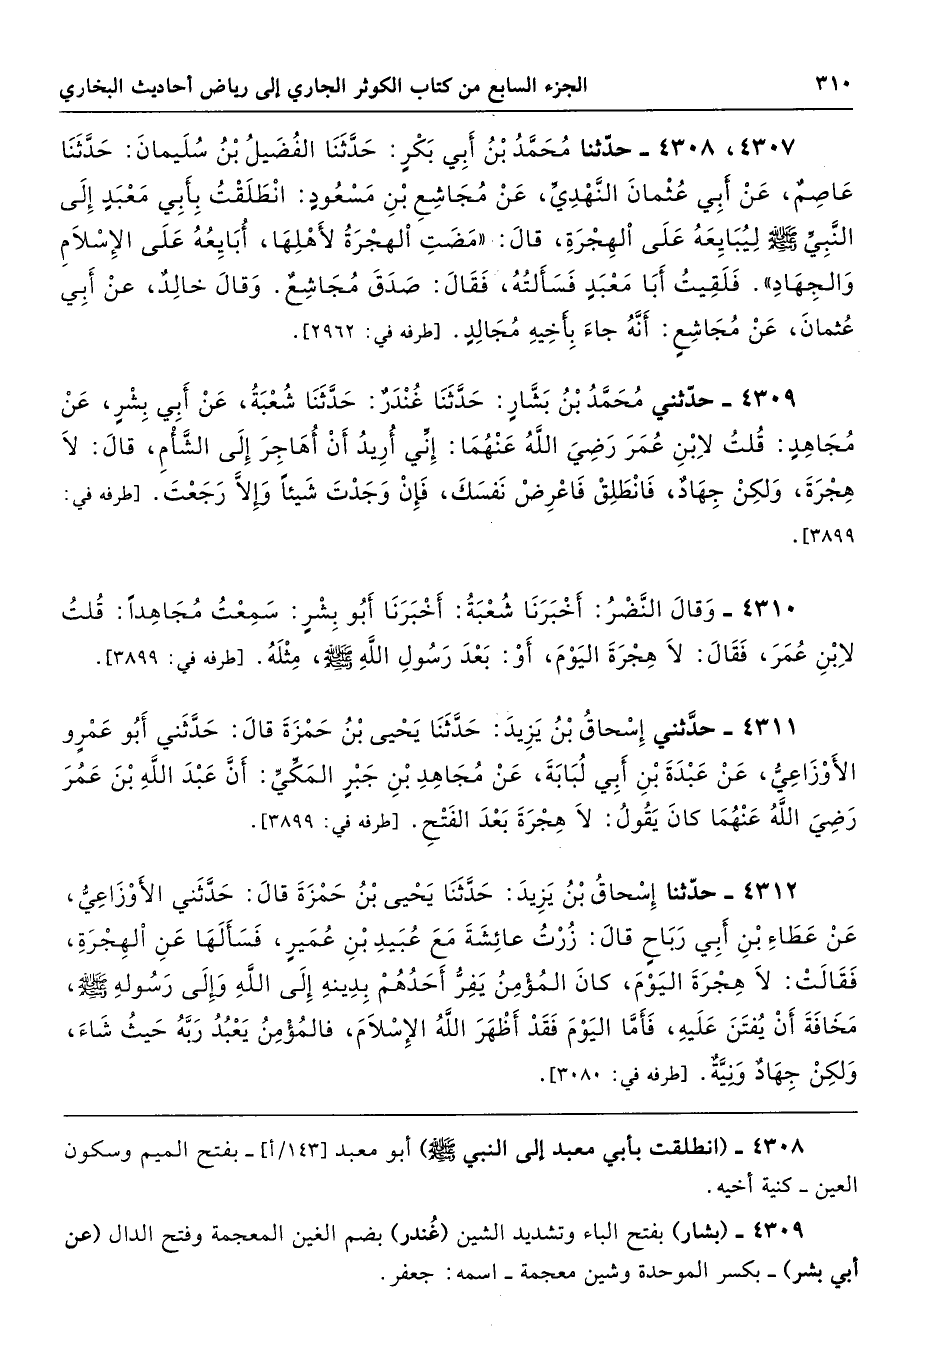 ٣١٠ الجزء السابع من كتاب الكوثر الجاري إلى رياض أحاديث البخاري
٤٣٠٧، ٤٣٠٨ ـ حدّثنا مُحَمَّدُ بْنُ أَبِي بَكْرٍ: حَدَّثَنَا الفُضَيلُ بْنُ سُلَيمانَ: حَدَّثَنَا
عَاصِمٌ، عَنْ أَبِي عُثْمانَ النَّهْدِيِّ، عَنْ مُجَاشِعِ بْنِ مَسْعُودٍ: انْطَلَقْتُ بِأَبِي مَعْبَدٍ إِلَى
النَّبِيِّ ﷺ لِيُبَايِعَهُ عَلَى الْهِجْرَةِ، قالَ: «مَضَتِ الْهِجْرَةُ لأَهْلِهَا، أُبَايِعُهُ عَلَى الإِسْلاَمِ
وَالجِهَادِ». فَلَقِيتُ أَبَا مَعْبَدٍ فَسَأَلتُهُ، فَقَالَ: صَدَقَ مُجَاشِعٌ. وَقالَ خالِدٌ، عنْ أَبِي
عُثمانَ، عَنْ مُجَاشِعٍ: أَنَّهُ جاءَ بِأَخِيهِ مُجَالِدٍ. [طرفه في: ٢٩٦٢].
٤٣٠٩ ـ حدّثني مُحَمَّدُ بْنُ بَشَّارٍ: حَدَّثَنَا غُنْدَرٌ: حَدَّثَنَا شُعْبَةُ، عَنْ أَبِي بِشْرٍ، عَنْ
مُجَاهِدٍ: قُلتُ لاِبْنِ عُمَرَ رَضِيَ اللَّهُ عَنْهُمَا: إِنِّي أُرِيدُ أَنْ أُهَاجِرَ إِلَى الشَّأْمِ، قالَ: لاَ
هِجْرَةَ، وَلكِنْ جِهَادٌ، فَانْطَلِقْ فَاعْرِضْ نَفسَكَ، فَإِنْ وَجَدْتَ شَيئاً وَإِلاَّ رَجَعْتَ. [طرفه في:
٣٨٩٩].
٤٣١٠ ـ وَقالَ النَّضْرُ: أَخْبَرَنَا شُعْبَةُ: أَخْبَرَنَا أَبُو بِشْرٍ: سَمِعْتُ مُجَاهِداً: قُلتُ
لاِبْنِ عُمَرَ، فَقَالَ: لاَ هِجْرَةَ اليَوْمَ، أَوْ: بَعْدَ رَسُولِ اللَّهِ ﷺ، مِثْلَهُ. [طرفه في: ٣٨٩٩].
٤٣١١ ـ حدَّثني إِسْحاقُ بْنُ يَزِيدَ: حَدَّثَنَا يَحْيى بْنُ حَمْزَةَ قالَ: حَدَّثَني أَبُو عَمْرٍو
الأَوْزَاعِيُّ، عَنْ عَبْدَةَ بْنِ أَبِي لُبَابَةَ، عَنْ مُجَاهِدِ بْنِ جَبْرٍ المَكِّيِّ: أَنَّ عَبْدَ اللَّهِ بْنَ عَمُرَ
رَضِيَ اللَّهُ عَنْهُمَا كانَ يَقُولُ: لاَ هِجْرَةَ بَعْدَ الفَتْحِ. [طرفه في: ٣٨٩٩].
٤٣١٢ ـ حدّثنا إِسْحاقُ بْنُ يَزِيدَ: حَدَّثَنَا يَحْيى بْنُ حَمْزَةَ قالَ: حَدَّثَني الأَوْزَاعِيُّ،
عَنْ عَطَاءِ بْنِ أَبِي رَبَاحٍ قالَ: زُرْتُ عائِشَةَ مَعَ عُبَيدِ بْنِ عُمَيرٍ، فَسَأَلَهَا عَنِ الْهِجْرَةِ،
فَقَالَتْ: لاَ هِجْرَةَ اليَوْمَ، كانَ المُؤْمِنُ يَفِرُّ أَحَدُهُمْ بِدِينِهِ إِلَى اللَّهِ وَإِلَى رَسُولِهِ ﷺ،
مَخَافَةَ أَنْ يُفتَنَ عَلَيهِ، فَأَمَّا اليَوْمَ فَقَدْ أَظْهَرَ اللَّهُ الإِسْلاَمَ، فالمُؤْمِنُ يَعْبُدُ رَبَّهُ حَيثُ شَاءَ،
وَلكِنْ جِهَادٌ وَنِيَّةٌ. [طرفه في: ٣٠٨٠].
٤٣٠٨ ـ (انطلقت بأبي معبد إلى النبي ﷺ) أبو معبد [١٤٣/أ] ـ بفتح الميم وسكون
العين ـ كنية أخيه.
٤٣٠٩ ـ (بشار) بفتح الباء وتشديد الشين (غُندر) بضم الغين المعجمة وفتح الدال (عن
أبي بشر) ـ بكسر الموحدة وشين معجمة ـ اسمه: جعفر.